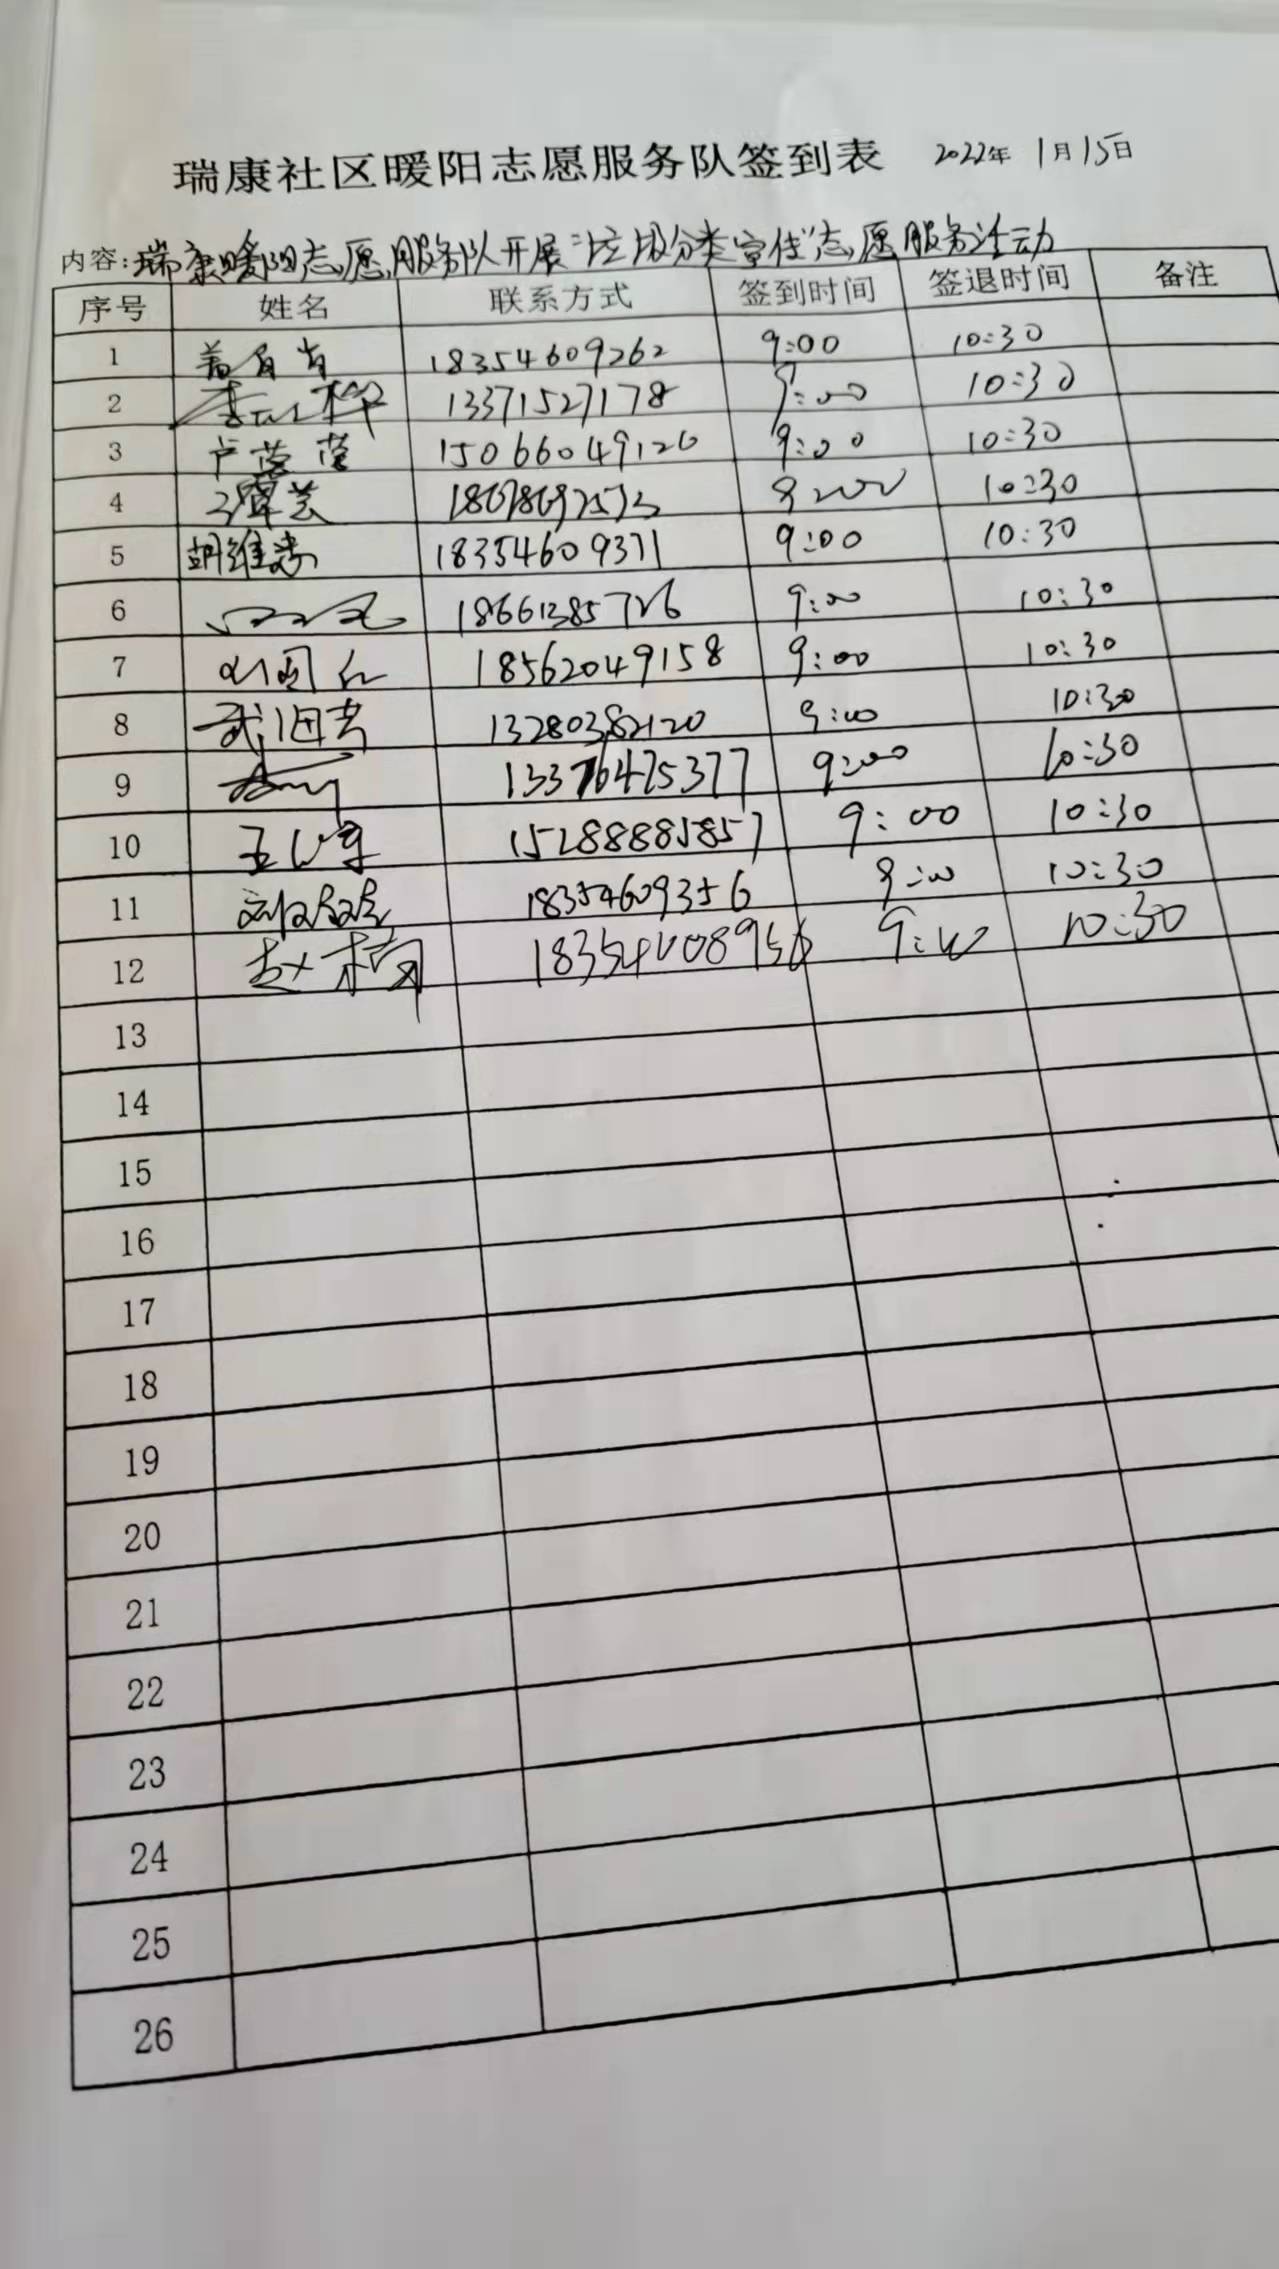 瑞康社区暖阳志愿服务队签到表 2022年 1月15日
内容:瑞康暖阳志愿服务队开展"垃圾分类宣传"志愿服务活动
序号 姓名 联系方式 签到时间 签退时间 备注
1 18354609262 9:00 10:30
2 13371527178 9:00 10:30
3 卢莹莹 15066049126 9:00 10:30
4 9:00 10:30
5 胡维 18354609371 9:00 10:30
6 9:00 10:30
7 18562049158 9:00 10:30
8 武 13280382120 9:00 10:30
9 13376475377 9:00 10:30
10 王 15288885857 9:00 10:30
11 刘 18354609356 9:00 10:30
12 赵楠 9:00 10:30
13
14
15
16
17
18
19
20
21
22
23
24
25
26